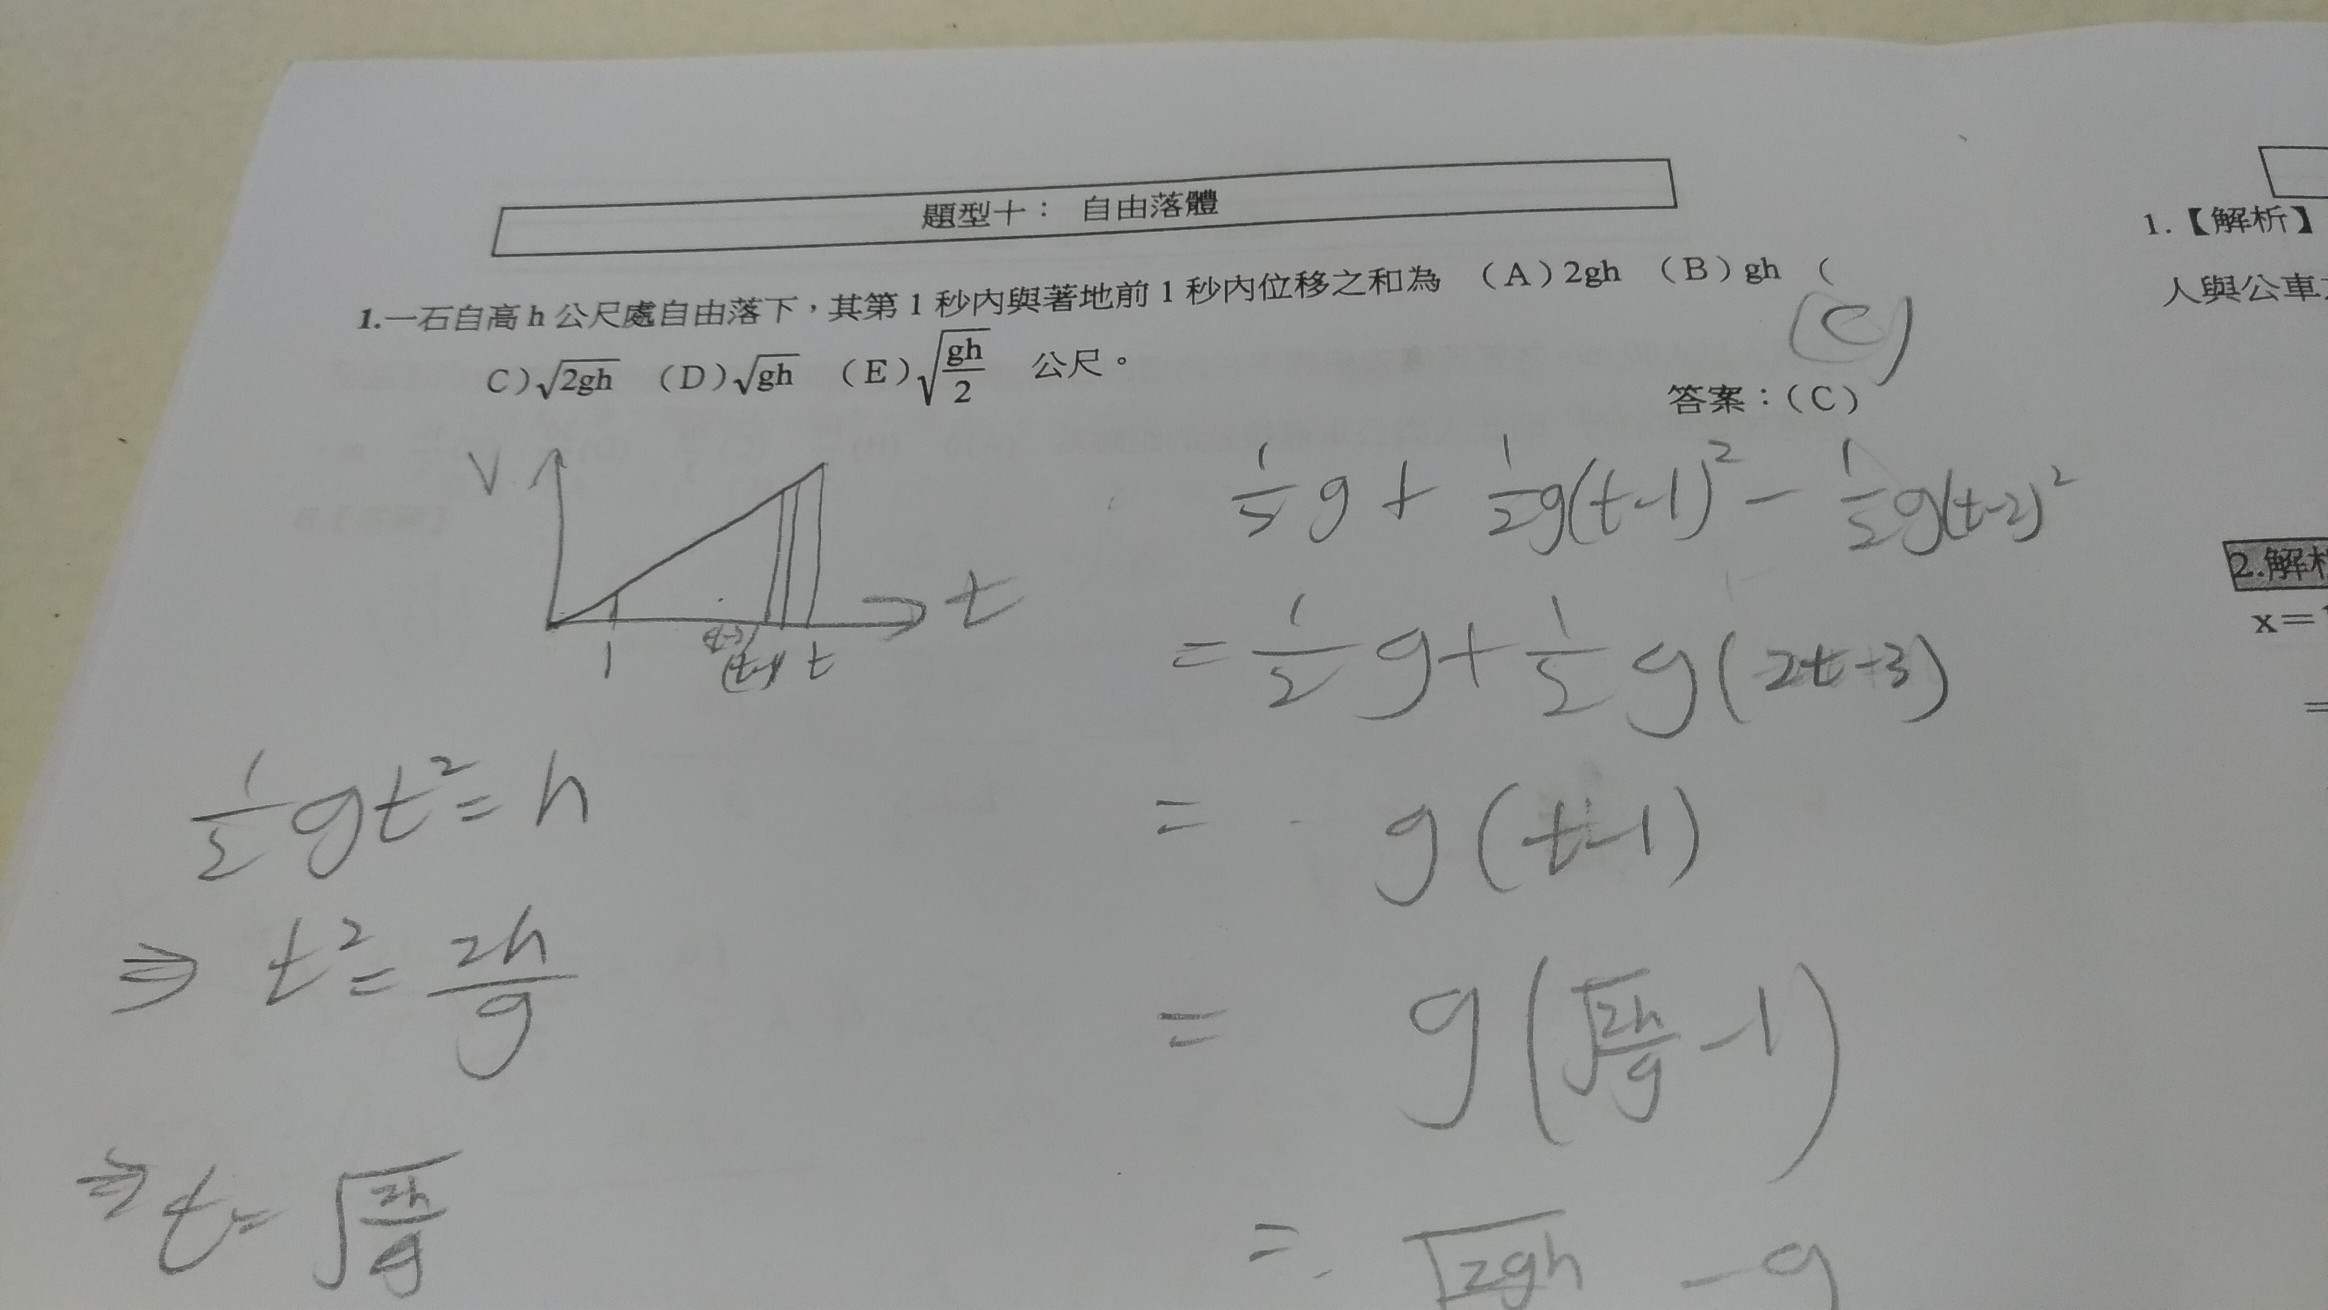 題型十： 自由落體
1.一石自高 h 公尺處自由落下，其第 1 秒內與著地前 1 秒內位移之和為 （A）2gh （B）gh （
C）√2gh （D）√gh （E）√(gh/2) 公尺。
(C)
答案：（C）
V
t
1 (t-2) (t-1) t
1/2 g + 1/2 g(t-1)² - 1/2 g(t-2)²
= 1/2 g + 1/2 g(2t-3)
= g(t-1)
= g(√(2h/g) - 1)
= √2gh - g
1/2 gt² = h
⇒ t² = 2h/g
⇒ t = √(2h/g)
1.【解析】
人與公車
2.解析
x＝
＝